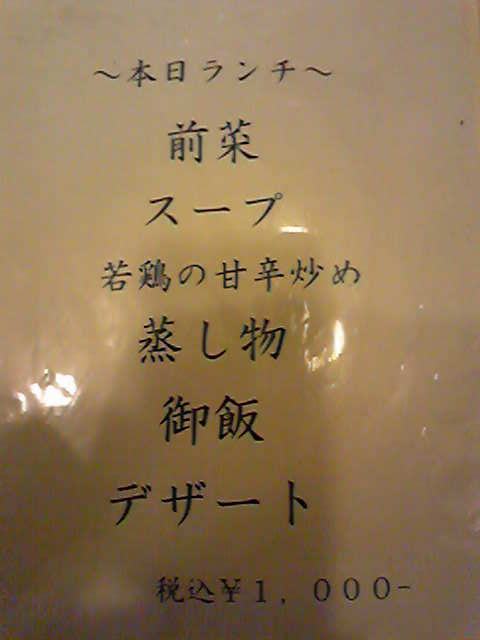 ～本日ランチ～
前菜
スープ
若鶏の甘辛炒め
蒸し物
御飯
デザート
税込¥1,000-